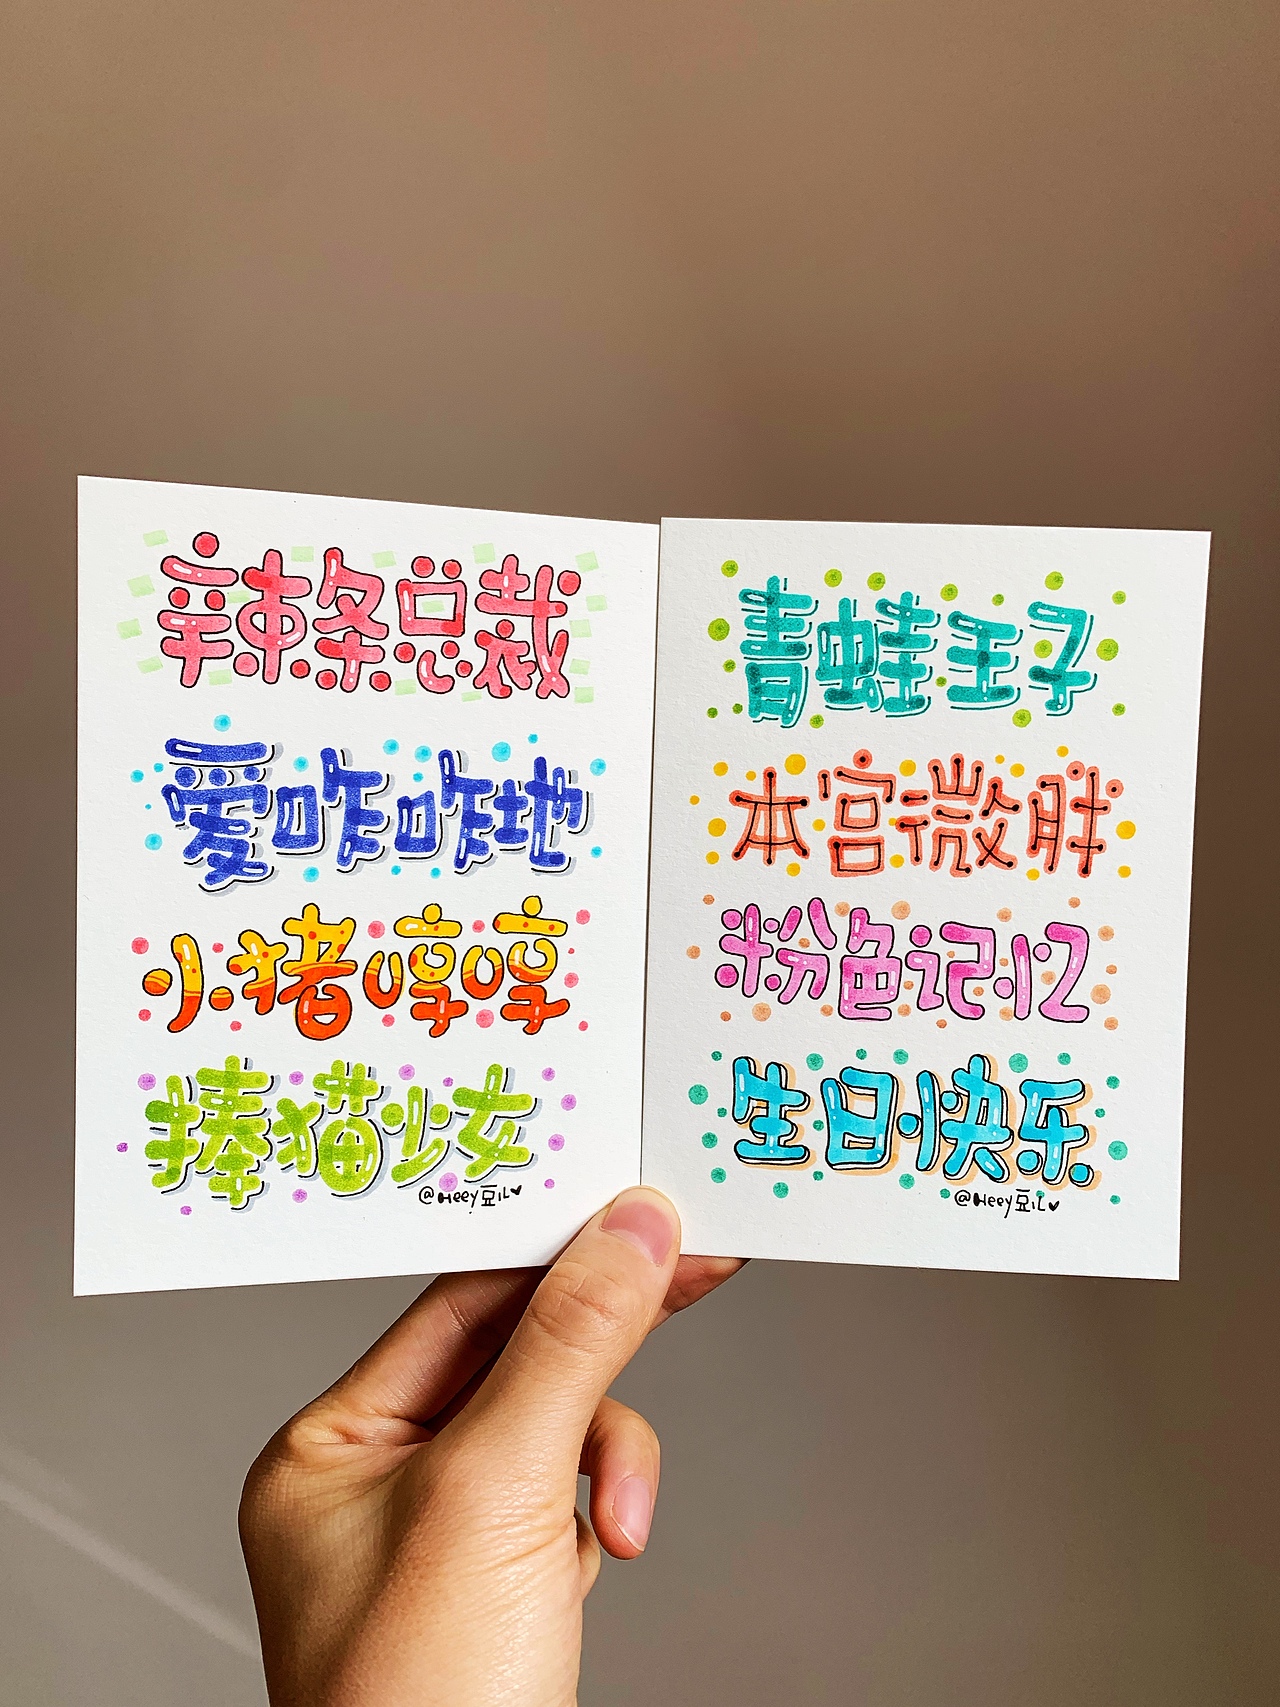 辣条总裁
爱咋咋地
小猪哼哼
捧猫少女
@Heey豆儿
青蛙王子
本宫微胖
粉色记忆
生日快乐
@Heey豆儿